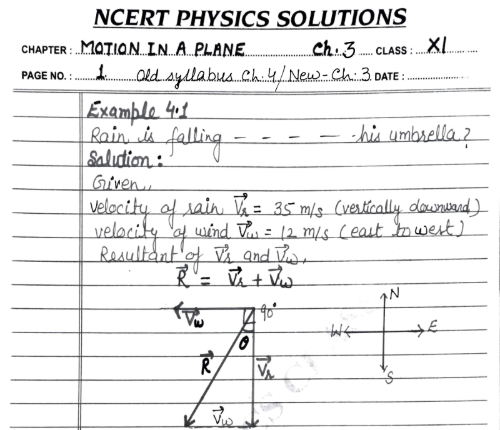 NCERT PHYSICS SOLUTIONS
CHAPTER : MOTION IN A PLANE Ch. 3 CLASS : XI
PAGE NO. : 1 Old syllabus Ch. 4/New-Ch: 3 DATE :
Example 4.1
Rain is falling - - - - his umbrella?
Solution :
Given,
velocity of rain V⃗r = 35 m/s (vertically downward)
velocity of wind V⃗w = 12 m/s (east to west)
Resultant of V⃗r and V⃗w,
R⃗ = V⃗r + V⃗w
V⃗w 90°
N
W E
θ
R⃗ V⃗r
S
V⃗w